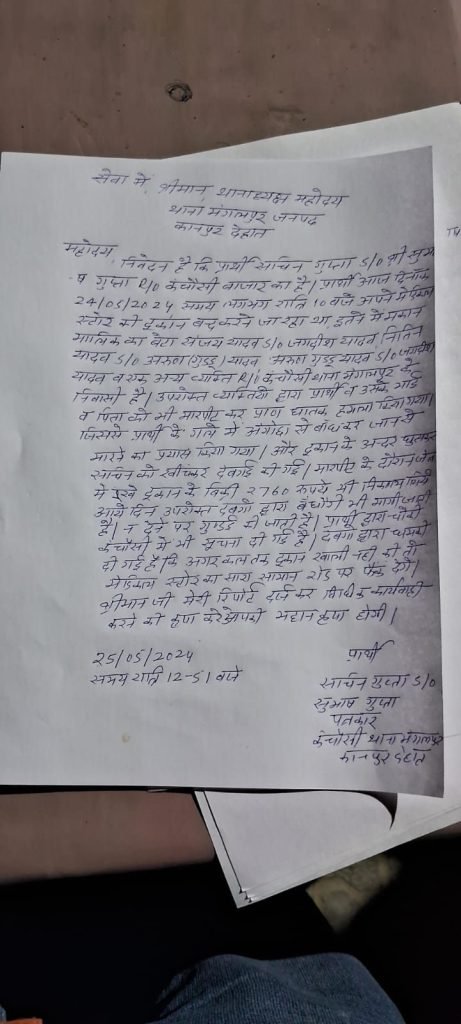 सेवा में, श्रीमान् थानाध्यक्ष महोदय
थाना मंगलपुर जनपद
कानपुर देहात
महोदय,
निवेदन है कि प्रार्थी सचिन गुप्ता S/O श्री सुभा
-ष गुप्ता R/O कंचौसी बाजार का है। प्रार्थी आज दिनांक
24/05/2024 समय लगभग रात्रि 10 बजे अपने मेडिकल
स्टोर की दुकान बन्द करने जा रहा था, इतने में मकान
मालिक का बेटा संजय यादव S/O जगदीश यादव, नितिन
यादव S/O अरुण (गुड्डू) यादव, अरुण गुड्डू यादव S/O जगदीश
यादव व एक अन्य व्यक्ति R/O कंचौसी थाना मंगलपुर के
निवासी है। उपरोक्त व्यक्तियों द्वारा प्रार्थी व उसके भाई
व पिता को भी मारपीट कर प्राण घातक हमला किया गया।
जिससे प्रार्थी के गले में अंगोछा से बांधकर जान से
मारने का प्रयास किया गया। और दुकान के अन्दर घुसकर
सचिन को खींचकर दबंगई की गई। मारपीट के दौरान जेब
में रखे दुकान के बिक्री 2760 रुपये भी
आये दिन उपरोक्त दबंगों द्वारा भी मांगी जाती
है। न देने पर गुण्डई की जाती है। प्रार्थी द्वारा चौकी
कंचौसी में भी सूचना दी गई है। दबंगों द्वारा धमकी
दी गई है कि अगर कल तक दुकान खाली नहीं की तो
मेडिकल स्टोर का सारा सामान रोड पर फेंक देंगे।
श्रीमान जी मेरी रिपोर्ट दर्ज कर विधिक कार्यवाही
करने की कृपा करें आपकी महान कृपा होगी।
25/05/2024
समय रात्रि 12-51 बजे
प्रार्थी
सचिन गुप्ता S/O
सुभाष गुप्ता
पत्रकार
कंचौसी थाना मंगलपुर
कानपुर देहात